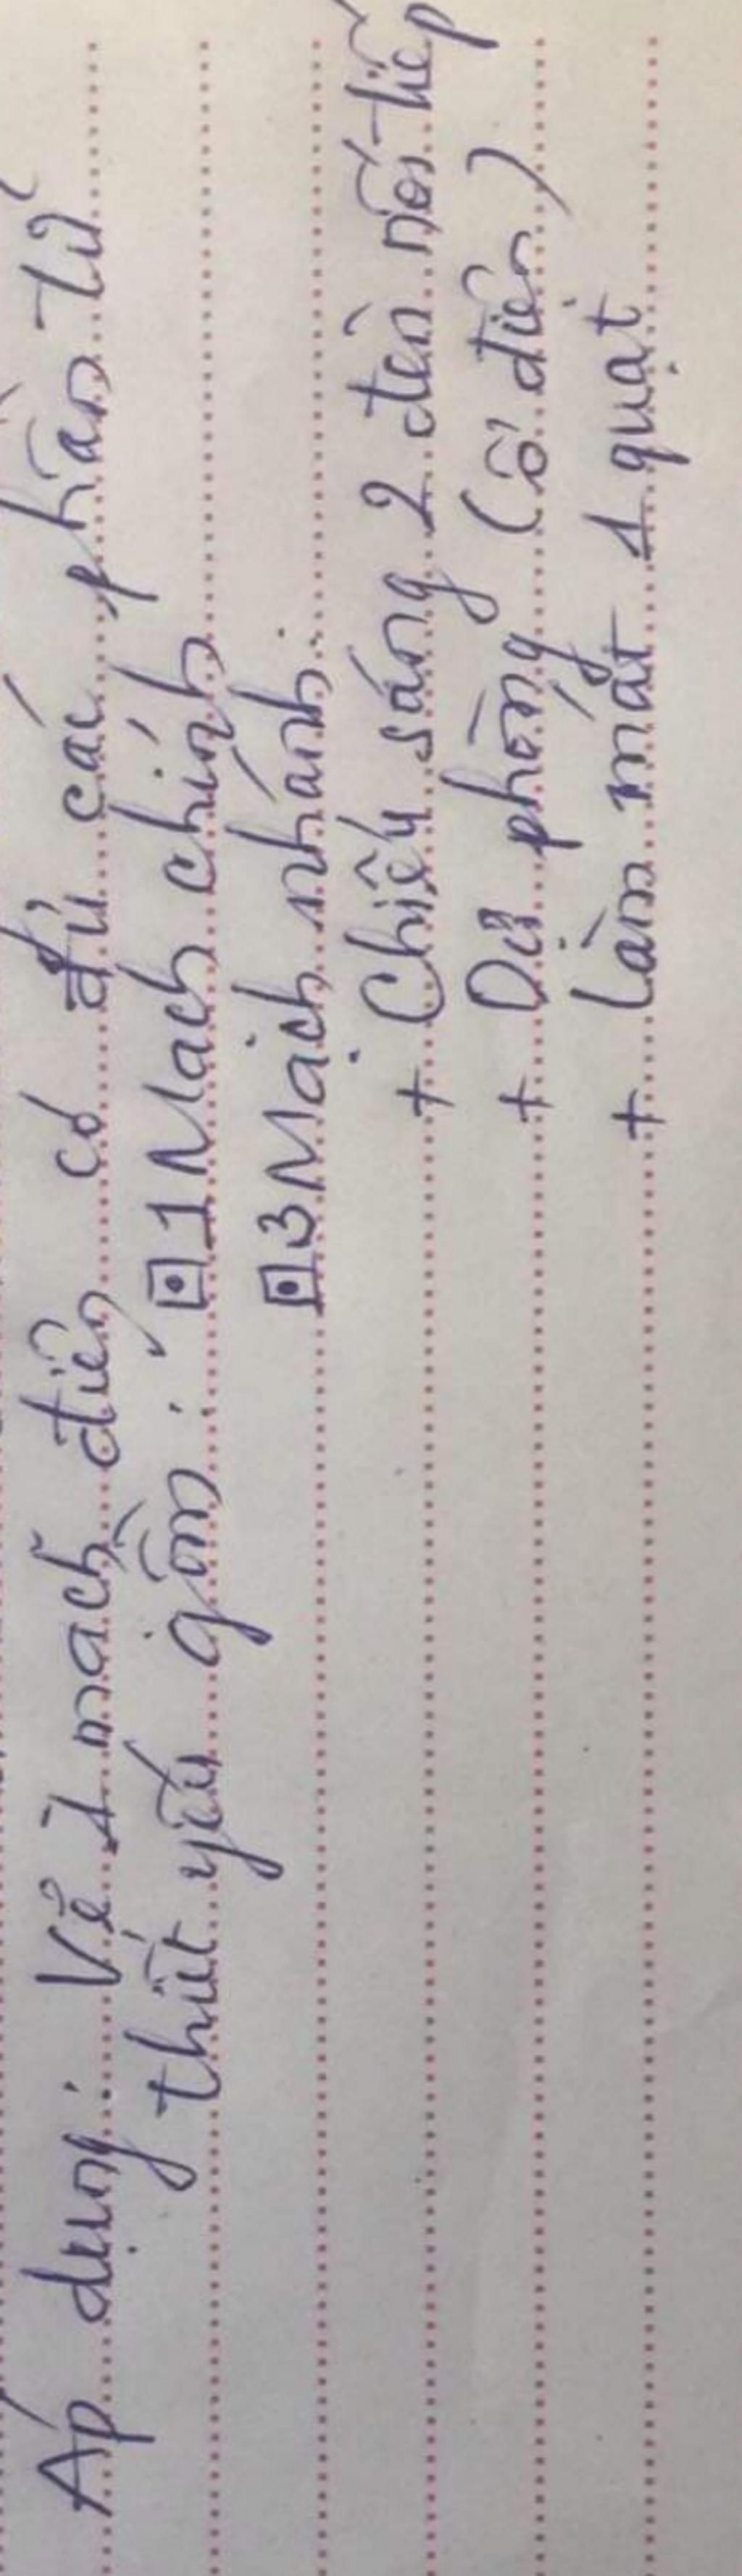 Áp dụng: Vẽ 1 mạch điện có đủ các phần tử
thiết yếu gồm: ⊡ 1 Mạch chính
⊡ 3 Mạch nhánh:
+ Chiếu sáng 2 đèn nối tiếp
+ Dự phòng (ổ điện)
+ Làm mát 1 quạt